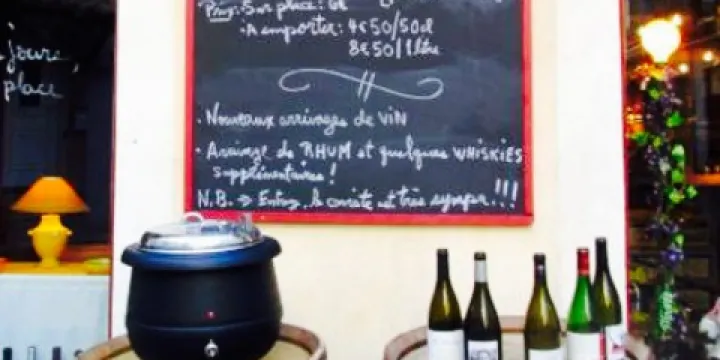 Prix: Sur place: 6€
• A emporter: 4€50/50cl
8€50/1 litre
• Nouveaux arrivages de VIN
• Arrivage de RHUM et quelques WHISKIES
supplémentaires!
N.B. → Entrez, le caviste est très sympa!!!
jours,
place